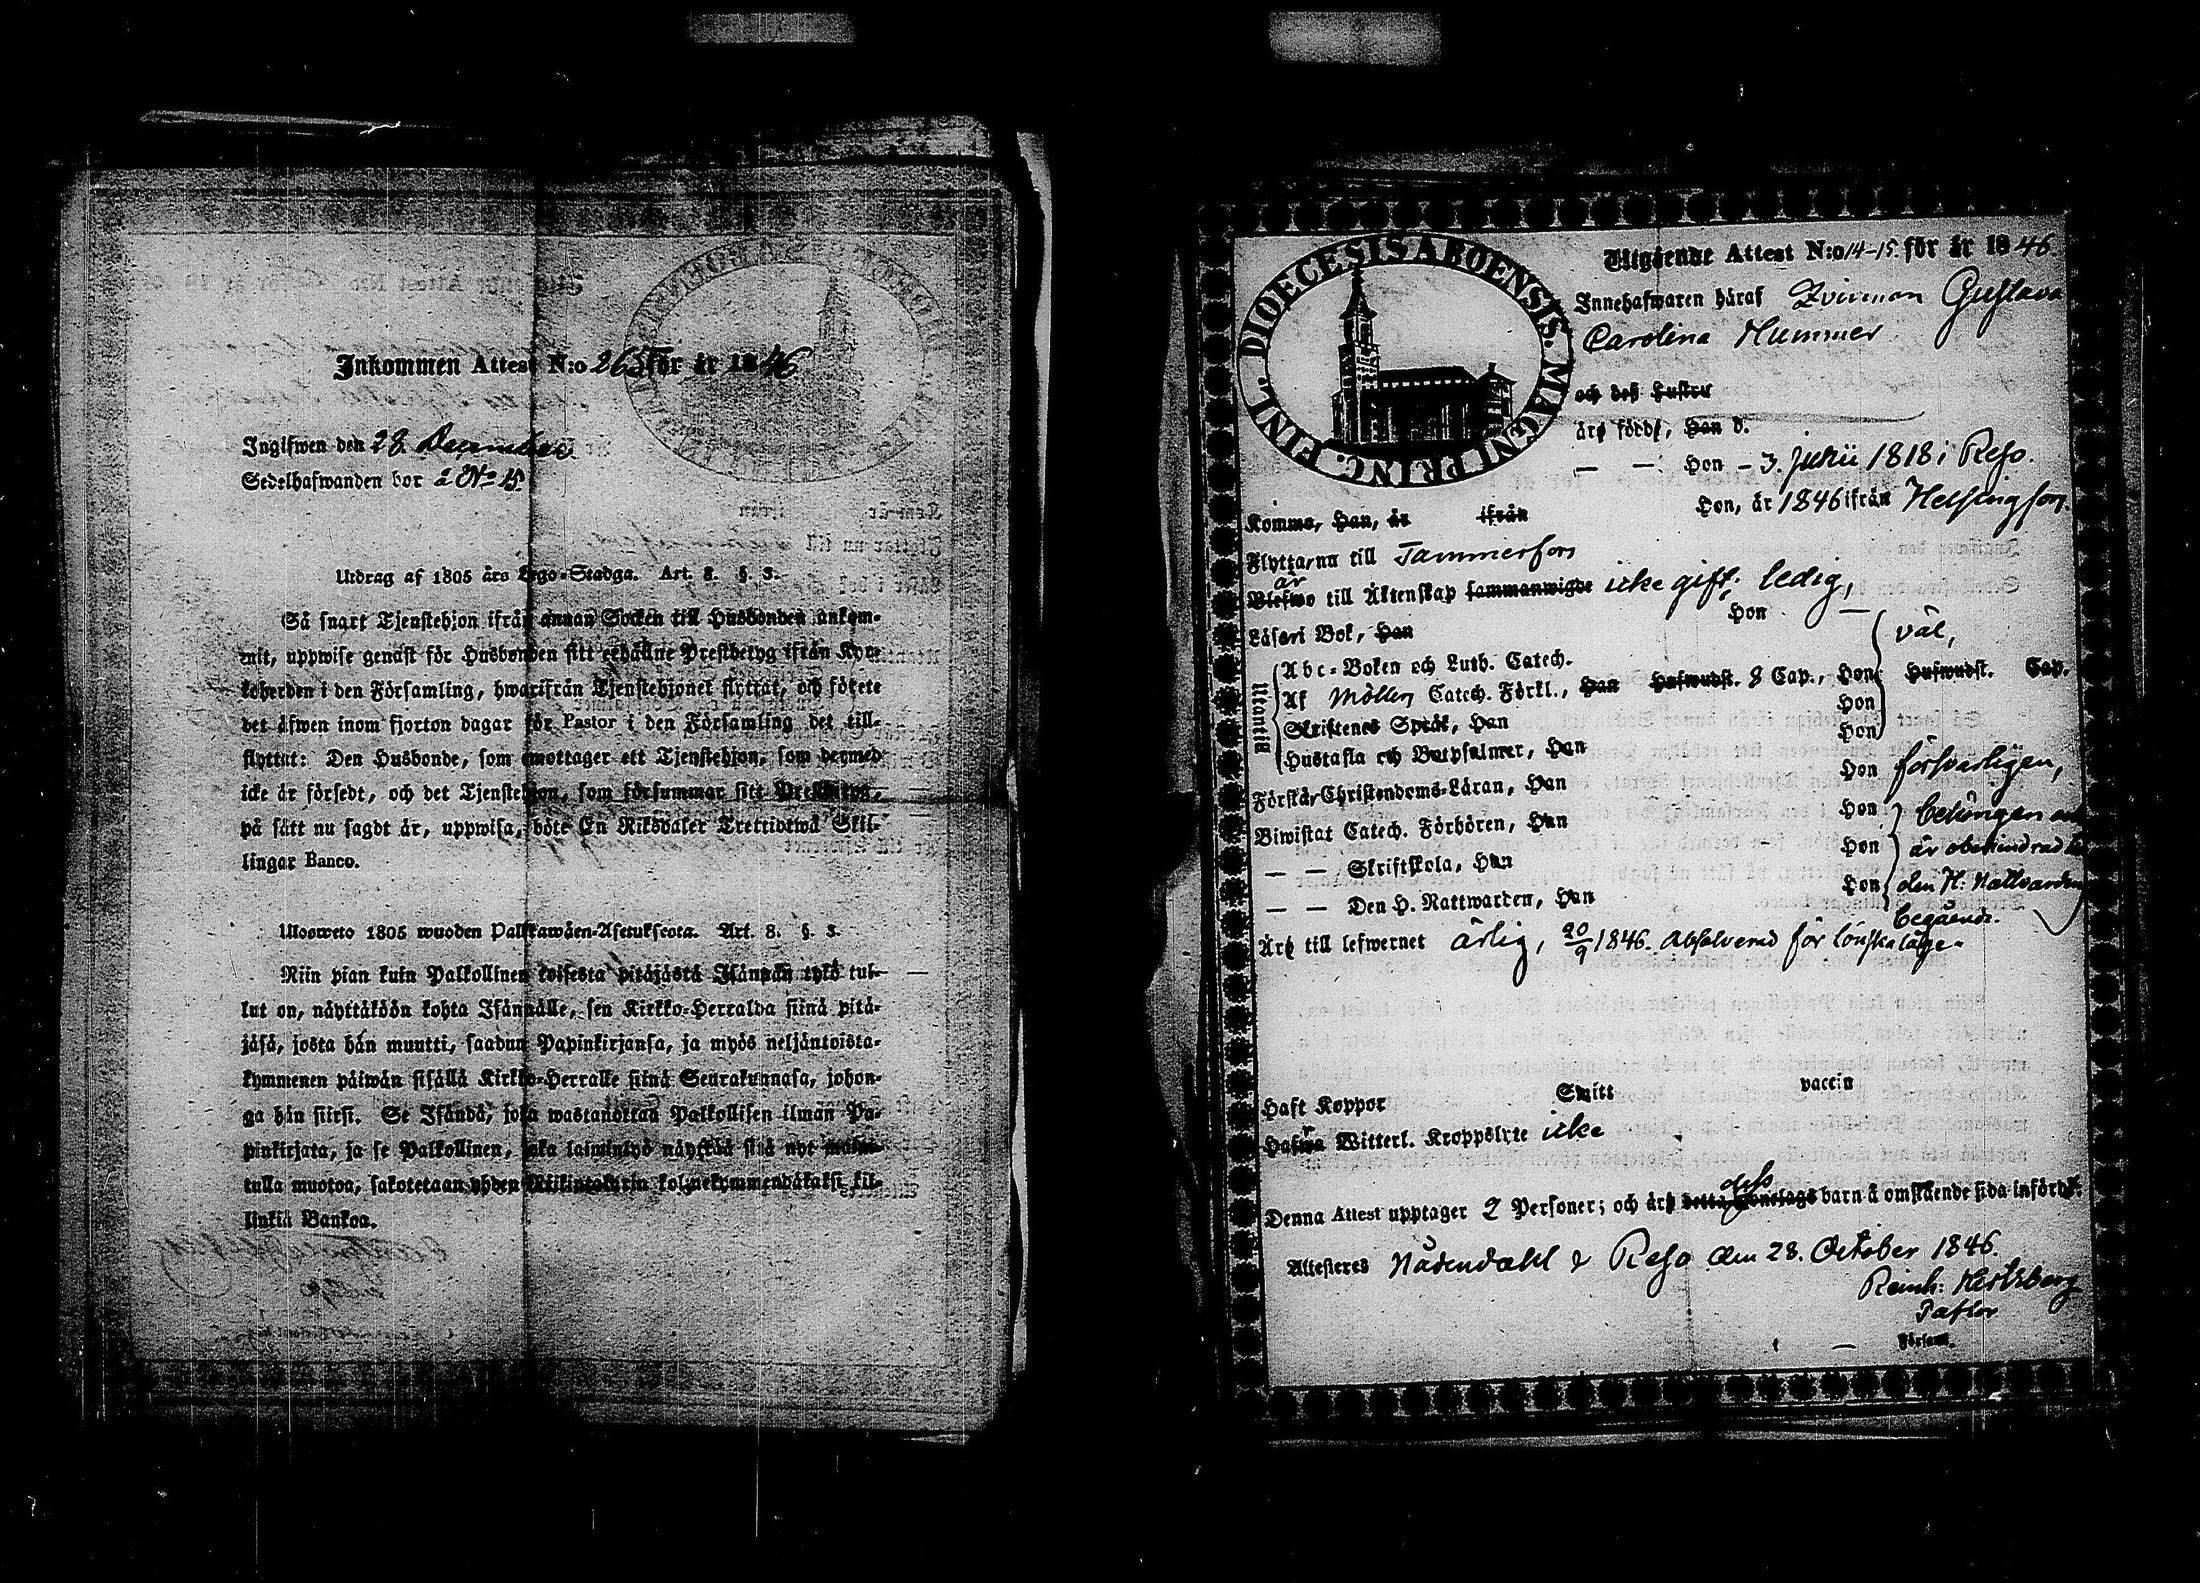 Inkommen Attest N:o 265 för år 1846.
Ingifwen den 28. December
Sedelhafwanden bor å N:o 15.
Utdrag af 1805 års Lego-Stadga. Art. 8. §. 3.
Så snart Tjenstehjon ifrån annan Socken till Husbonden ankom-
mit, uppwise genast för Husbonden sitt erhållne Prestbetyg ifrån Kyr-
koherden i den Församling, hwarifrån Tjenstehjonet flyttat, och förete
det äfwen inom fjorton dagar för Pastor i den Församling det till-
flyttat: Den Husbonde, som emottager ett Tjenstehjon, som dermed
icke är försedt, och det Tjenstehjon, som försummar sitt Prestbetyg,
på sätt nu sagdt är, uppwisa, böte En Riksdaler Trettiotwå Skil-
lingar Banco.
Ulosweto 1805 wuoden Palkkawäen-Asetuksesta. Art. 8. §. 3.
Niin pian kuin Palkollinen toisesta pitäjästä Isännän tykö tul-
lut on, näyttäköön kohta Isännälle, sen Kirkko-Herralda siinä pitä-
jäsä, josta hän muutti, saadun Papinkirjansa, ja myös neljäntoista-
kymmenen päiwän sisällä Kirkko-Herralle siinä Seurakunnasa, johon-
ga hän siirsi. Se Isändä, joka wastanottaa Palkollisen ilman Pa-
pinkirjata, ja se Palkollinen, joka laiminlyö näyttää sitä nyt
tulla muotoa, sakotetaan yhden Riikintalarin kolmekymmendäkaksi kil-
linkiä Bankoa.
DIOECESIS ABOENSIS. MAGNI PRINC. FINL.
Utgående Attest N:o 14-15. för år 1846.
Innehafwaren häraf Gustava
Carolina Hummer
och deß hustru
äro födde, Han d.
— — Hon – 3. Julii 1818 i Reso.
Komne, Han, år ifrån Hon, år 1846 ifrån Helsingfors.
Flyttar nu till Tammerfors
är
Blefwo till Äktenskap sammanwigde icke gift; ledig,
Läser i Bok, Han Hon — väl,
Utantill
Abc-Boken och Luth. Catech.
Af Möllers Catech. Förkl., Han Hufwudst. 8 Cap., Hon Hufwudst. Cap.
Skriftenes Språk, Han Hon
Hustafla och Botpsalmer, Han Hon
Förstår Christendoms-Läran, Han Hon försvarligen,
Biwistat Catech. Förhören, Han Hon
— — Skriftskola, Han Hon är obehindrad
— — Den H. Nattwarden, Han Hon den H: Nattvarden
begående.
Äro till lefwernet ärlig, 20/9 1846. Absolverad för lönska läge.
Haft Koppor Smitt vaccin
Hafwa Witterl. Kroppslyte icke
dess
Denna Attest upptager 2 Personer; och äro detta Hjonelags barn å omstående sida införde.
Attesteras Nådendahl & Reso den 28. October 1846.
Reinh: Hertzberg
Pastor
Församl.